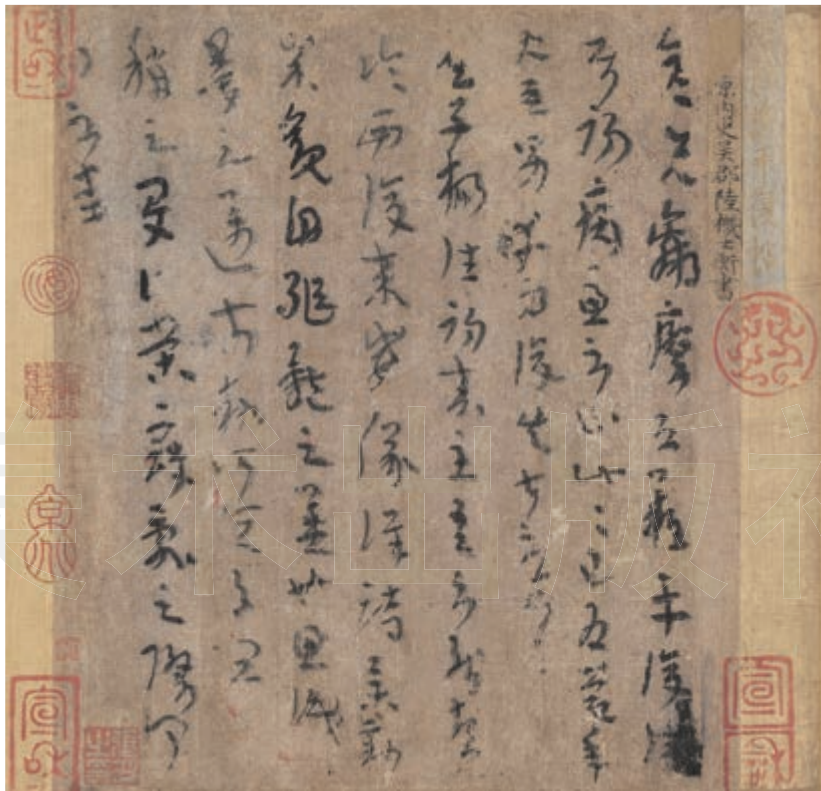 原內史吳郡陸機士衡書
彥先羸瘵恐難平復往
屬初病慮不止此此已為慶承
使唯男幸為復失前憂耳
吳子楊往初來主吾不能盡
臨西復來威儀詳跱舉動
成觀自軀體之美也思識
量之邁前執所恒有宜
稱之夏伯榮寇亂之際聞
問不悉
政和
宣和
宣和
术出版社